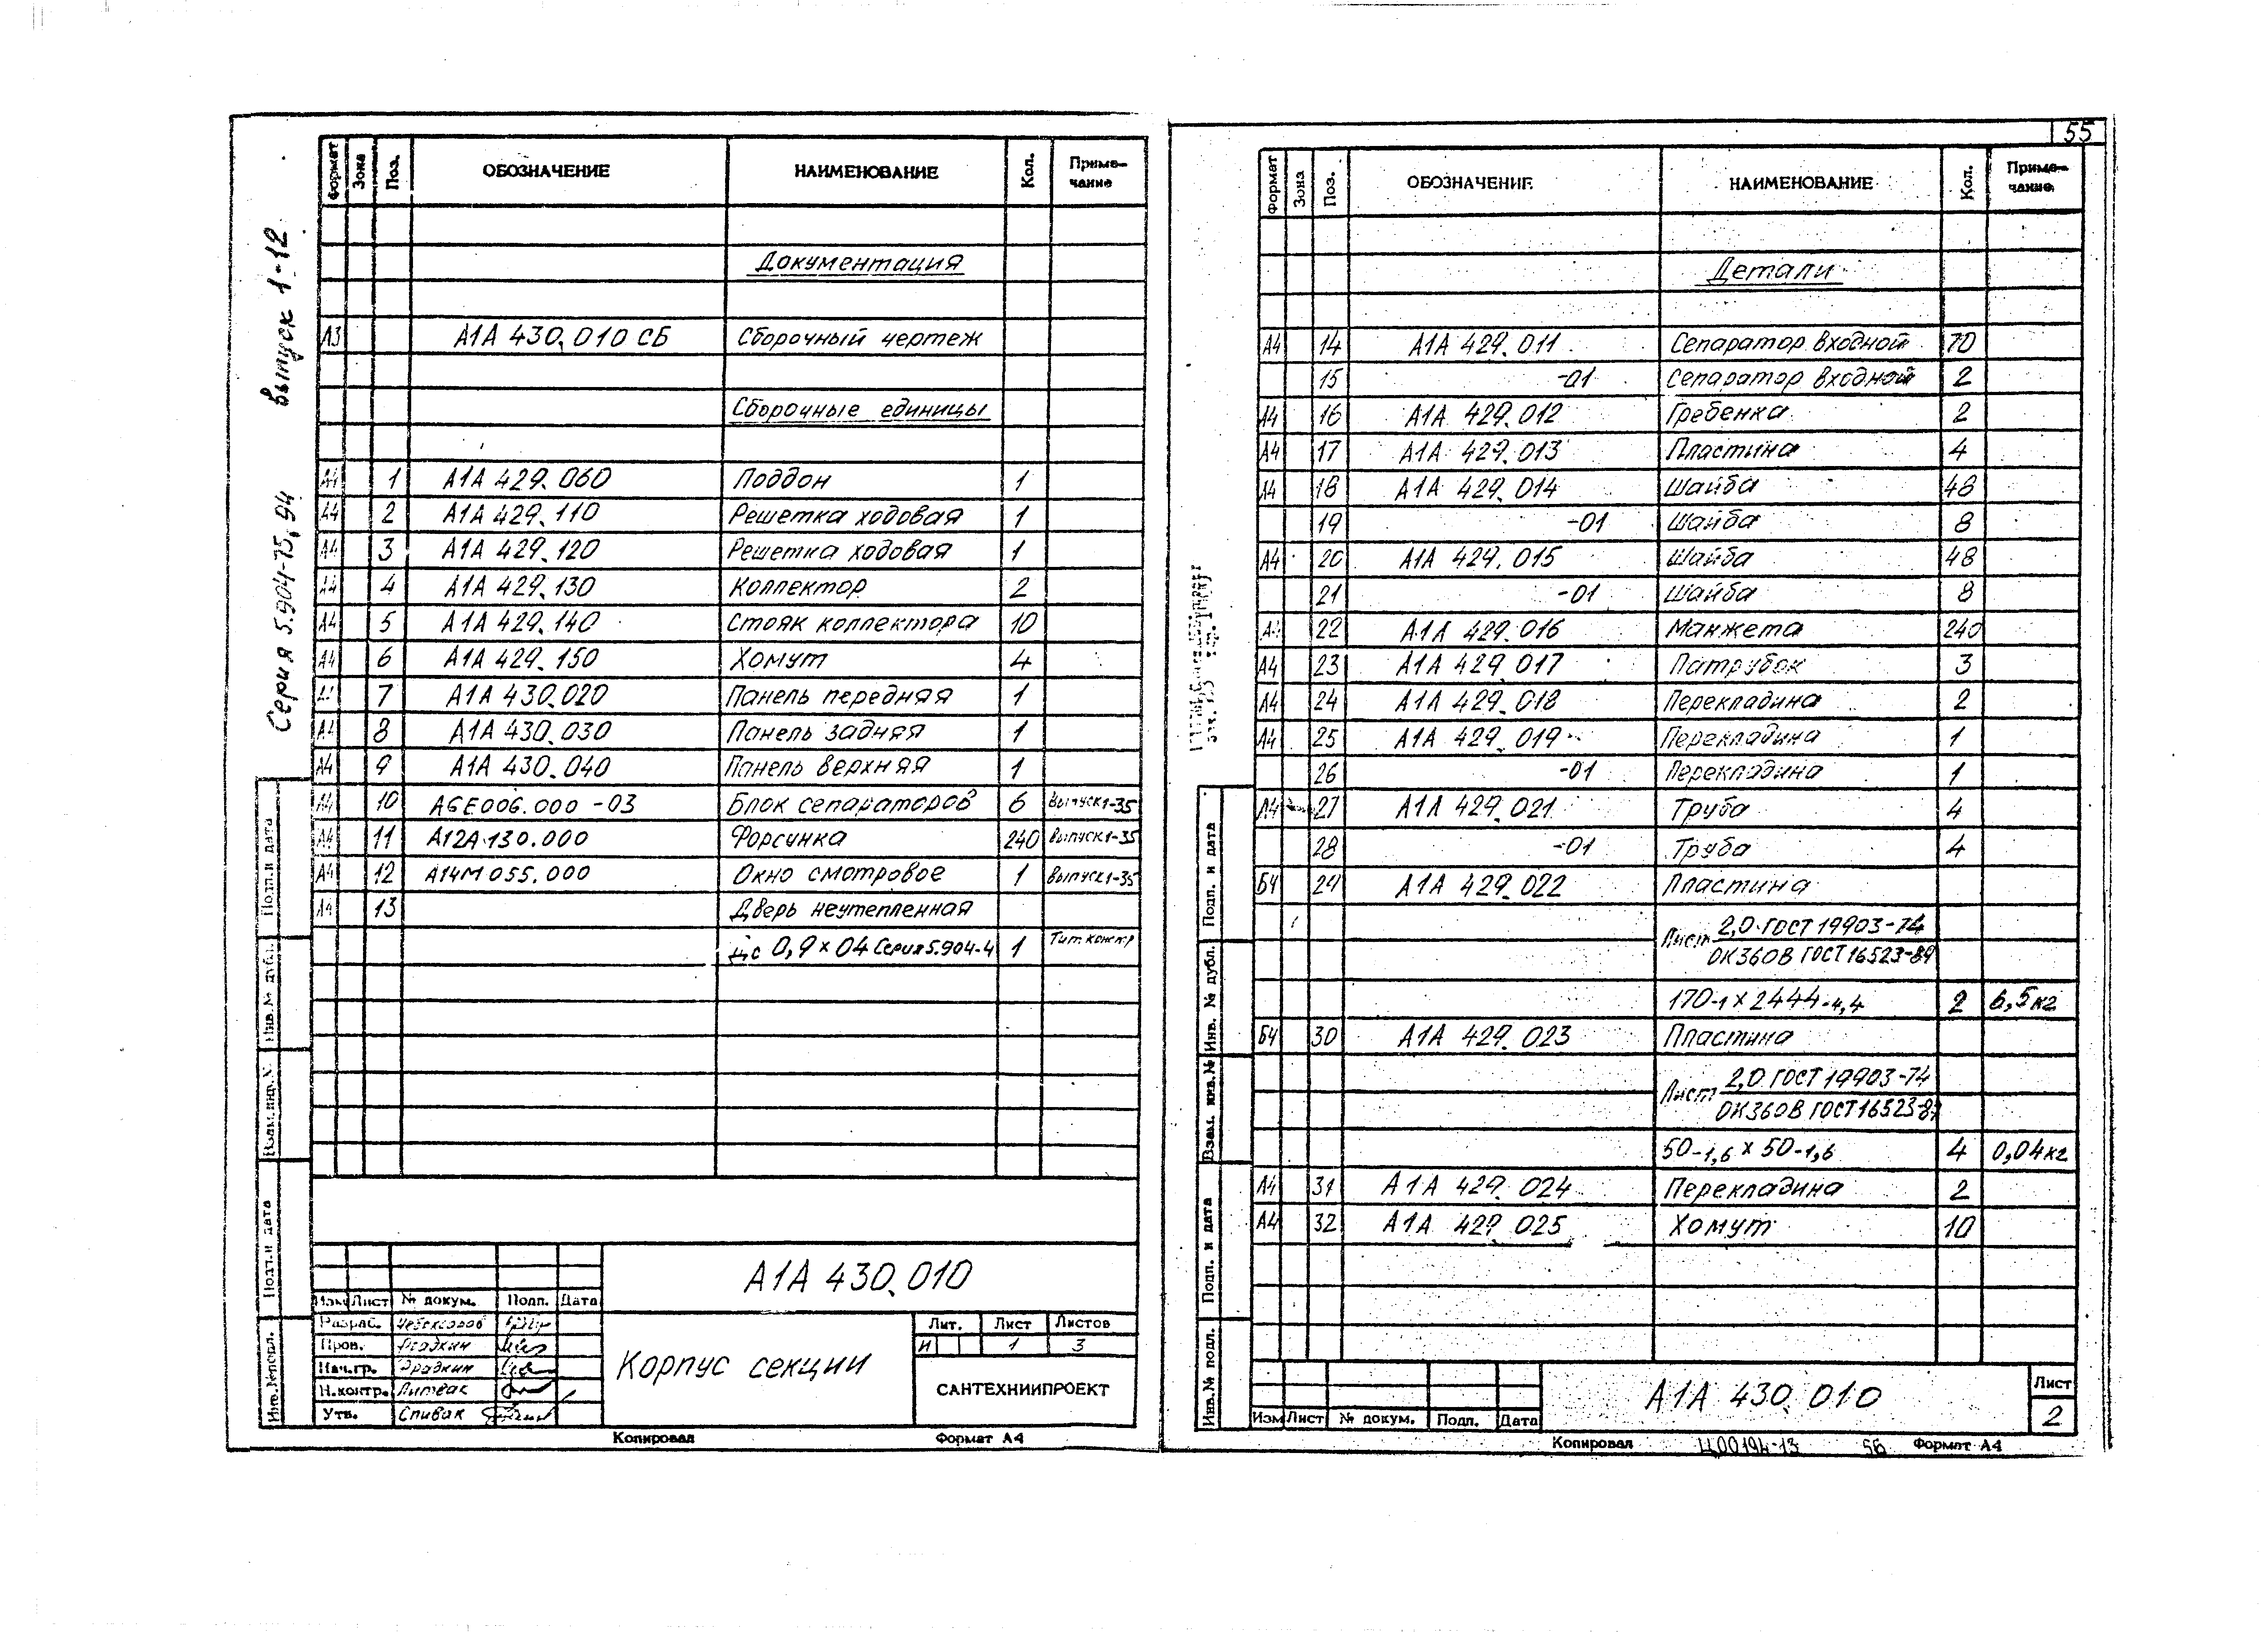 Серия 5.904-75.94 выпуск 1-12
Формат Зона Поз. ОБОЗНАЧЕНИЕ НАИМЕНОВАНИЕ Кол. Приме-
чание
Документация
А3 А1А 430.010 СБ Сборочный чертеж
Сборочные единицы
А4 1 А1А 429.060 Поддон 1
А4 2 А1А 429.110 Решетка ходовая 1
А4 3 А1А 429.120 Решетка ходовая 1
А4 4 А1А 429.130 Коллектор 2
А4 5 А1А 429.140 Стояк коллектора 10
А4 6 А1А 429.150 Хомут 4
7 А1А 430.020 Панель передняя 1
А4 8 А1А 430.030 Панель задняя 1
А4 9 А1А 430.040 Панель верхняя 1
А4 10 А6Е006.000 -03 Блок сепараторов 6 Выпуск1-35
А4 11 А12А130.000 Форсунка 240 Выпуск1-35
А4 12 А14М055.000 Окно смотровое 1 Выпуск1-35
А4 13 Дверь неутепленная
0,9 × 04 Серия5.904-4 1
Подп.и дата
Инв.№ дубл.
Взам.инв.№
Подп.и дата
Инв.№подл.
А1А 430.010
Изм Лист № докум. Подп. Дата
Разраб. Чебоксаров
Пров.
Нач.гр.
Н.контр. Литвак
Утв. Спивак
Корпус секции
Лит. Лист Листов
И 1 3
САНТЕХНИИПРОЕКТ
Копировал Формат А4
55
Формат Зона Поз. ОБОЗНАЧЕНИЕ НАИМЕНОВАНИЕ Кол. Приме-
чание
Детали
А4 14 А1А 429.011 Сепаратор входной 70
15 -01 Сепаратор входной 2
А4 16 А1А 429.012 Гребенка 2
А4 17 А1А 429.013 Пластина 4
А4 18 А1А 429.014 Шайба 48
19 -01 Шайба 8
А4 20 А1А 429.015 Шайба 48
21 -01 Шайба 8
А4 22 А1А 429.016 Манжета 240
А4 23 А1А 429.017 Патрубок 3
А4 24 А1А 429.018 Перекладина 2
А4 25 А1А 429.019 Перекладина 1
26 -01 Перекладина 1
А4 27 А1А 429.021 Труба 4
28 -01 Труба 4
БЧ 29 А1А 429.022 Пластина
Лист 2,0 ГОСТ 19903-74
ОК360В ГОСТ16523-89
170-1 × 2444-4,4 2 6,5кг
БЧ 30 А1А 429.023 Пластина
Лист 2,0 ГОСТ 19903-74
ОК360В ГОСТ16523-89
50-1,6 × 50-1,6 4 0,04кг
А4 31 А1А 429.024 Перекладина 2
А4 32 А1А 429.025 Хомут 10
Подп. и дата
Инв. № дубл.
Взам. инв.№
Подп. и дата
Инв.№ подл.
Изм Лист № докум. Подп. Дата
А1А 430.010
Лист
2
Копировал Ц00194-13 56 Формат А4